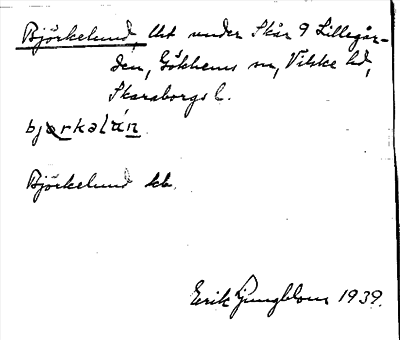 Björkelund, lht under Skår 9 Lillegår-
den, Gökhems sn, Vilske hd,
Skaraborgs l.
bjørkalún
Björkelund kb.
Erik Ljungblom 1939.